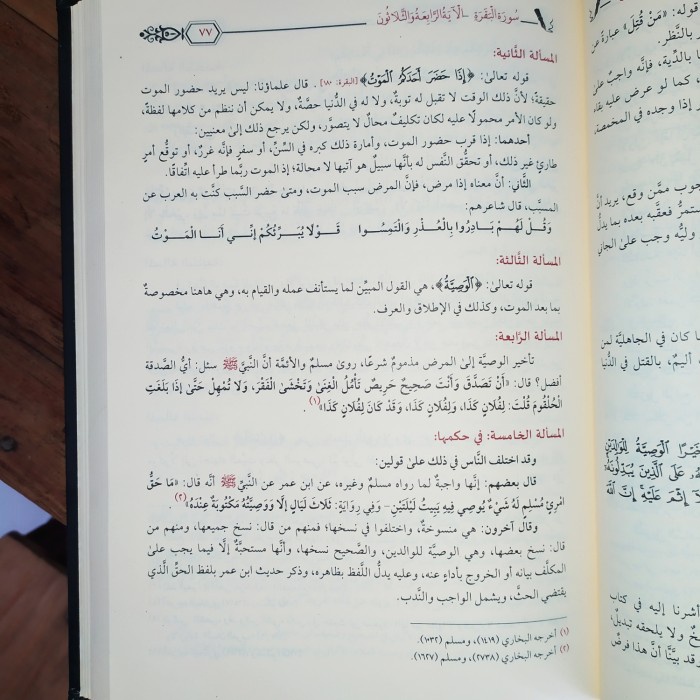 سُورَةُ البَقَرَةِ - الْآيَةُ الرَّابِعَةُ وَالثَّلَاثُونَ
٧٧
المسألة الثانية:
قوله تعالىٰ: ﴿إِذَا حَضَرَ أَحَدَكُمُ ٱلۡمَوۡتُ﴾ [البقرة: ١٨٠]. قال علماؤنا: ليس يريد حضور الموت
حقيقةً؛ لأنَّ ذلك الوقت لا تقبل له توبةٌ، ولا له في الدُّنيا حصَّةٌ، ولا يمكن أن ننظم من كلامها لفظةً،
ولو كان الأمر محمولًا عليه لكان تكليفُ محالٍ لا يتصوَّر، ولكن يرجع ذلك إلىٰ معنيين:
أحدهما: إذا قرب حضور الموت، وأمارة ذلك كبره في السِّنِّ، أو سفرٍ فإنَّه غررٌ، أو توقُّع أمرٍ
طارئٍ غير ذلك، أو تحقُّق النَّفس له بأنَّها سبيلٌ هو آتيها لا محالة؛ إذ الموت ربَّما طرأ عليه اتِّفاقًا.
الثَّاني: أنَّ معناه إذا مرض، فإنَّ المرض سبب الموت، ومتىٰ حضر السَّبب كنَّت به العرب عن
المسبَّب، قال شاعرهم:
وَقُلْ لَهُمْ بَادِرُوا بِالْعُذْرِ وَالْتَمِسُوا قَوْلًا يُبَرِّئُكُمْ إِنِّي أَنَا الْمَوْتُ
المسألة الثَّالثة:
قوله تعالىٰ: ﴿ٱلۡوَصِيَّةُ﴾، هي القول المبيِّن لما يستأنف عمله والقيام به، وهي هاهنا مخصوصةٌ
بما بعد الموت، وكذلك في الإطلاق والعرف.
المسألة الرَّابعة:
تأخير الوصيَّة إلىٰ المرض مذمومٌ شرعًا، روىٰ مسلم والأئمَّة أنَّ النَّبيَّ ﷺ سئل: أيُّ الصَّدقة
أفضل؟ قال: «أَنْ تَصَدَّقَ وَأَنْتَ صَحِيحٌ حَرِيصٌ تَأْمُلُ الْغِنَىٰ وَتَخْشَىٰ الْفَقْرَ، وَلَا تُمْهِلْ حَتَّىٰ إِذَا بَلَغَتِ
الْحُلْقُومَ قُلْتَ: لِفُلَانٍ كَذَا، وَلِفُلَانٍ كَذَا، وَقَدْ كَانَ لِفُلَانٍ كَذَا»(١).
المسألة الخامسة: في حكمها:
وقد اختلف النَّاس في ذلك علىٰ قولين:
قال بعضهم: إنَّها واجبةٌ لما رواه مسلم وغيره، عن ابن عمر عن النَّبيِّ ﷺ أنَّه قال: «مَا حَقُّ
امْرِئٍ مُسْلِمٍ لَهُ شَيْءٌ يُوصِي فِيهِ يَبِيتُ لَيْلَتَيْنِ - وَفِي رِوَايَةٍ: ثَلَاثَ لَيَالٍ إِلَّا وَوَصِيَّتُهُ مَكْتُوبَةٌ عِنْدَهُ»(٢).
وقال آخرون: هي منسوخةٌ، واختلفوا في نسخها؛ فمنهم من قال: نسخ جميعها، ومنهم من
قال: نسخ بعضها، وهي الوصيَّة للوالدين، والصَّحيح نسخها، وأنَّها مستحبَّةٌ إلَّا فيما يجب علىٰ
المكلَّف بيانه أو الخروج بأداءٍ عنه، وعليه يدلُّ اللَّفظ بظاهره، وذكر حديث ابن عمر بلفظ الحقِّ الَّذي
يقتضي الحثَّ، ويشمل الواجب والنَّدب.
(١) أخرجه البخاري (١٤١٩)، ومسلم (١٠٣٢).
(٢) أخرجه البخاري (٢٧٣٨)، ومسلم (١٦٢٧).
قوله: «مَنْ قُتِلَ» عبارةٌ عن
بالنَّظر.
بالدِّية، فإنَّه واجبٌ علىٰ
، كما لو عرض عليه بقاء
إذا وجده في المخمصة،
جوب ممَّن وقع، يريد أنَّ
ستمرُّ فعقَّبه بعده بما يدلُّ
وليُّه وجب علىٰ الجاني
ما كان في الجاهليَّة لمن
أليم، بالقتل في الدُّنيا
ٱلۡوَصِيَّةُ لِلۡوَٰلِدَيۡنِ
عَلَى ٱلَّذِينَ يُبَدِّلُونَهُۥٓ
إِثۡمَ عَلَيۡهِۚ إِنَّ ٱللَّهَ
أشرنا إليه في كتاب
ولا يلحقه تبديلٌ
وقد بينَّا أنَّ هذا فرضٌ